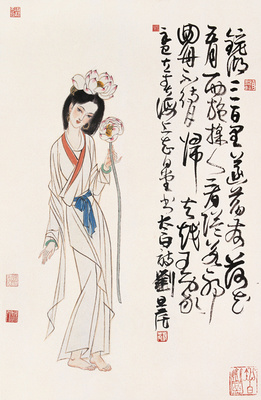 鏡湖三百里菡萏發荷花
五月西施採人看隘若耶
回舟不待月歸去越王家
書太白詩劉旦宅